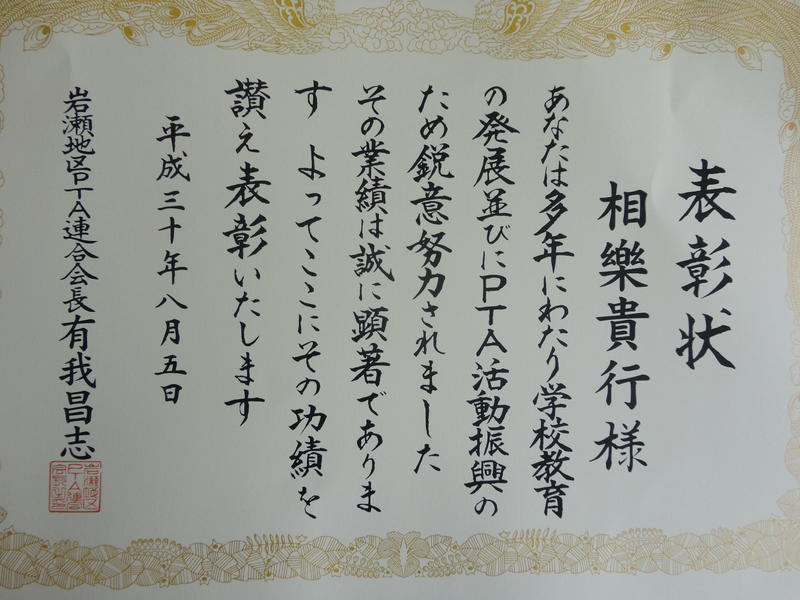 表彰状
相樂貴行様
あなたは多年にわたり学校教育
の発展並びにPTA活動振興の
ため鋭意努力されました
その業績は誠に顕著でありま
す よってここにその功績を
讃え表彰いたします
平成三十年八月五日
岩瀬地区PTA連合会長 有我昌志